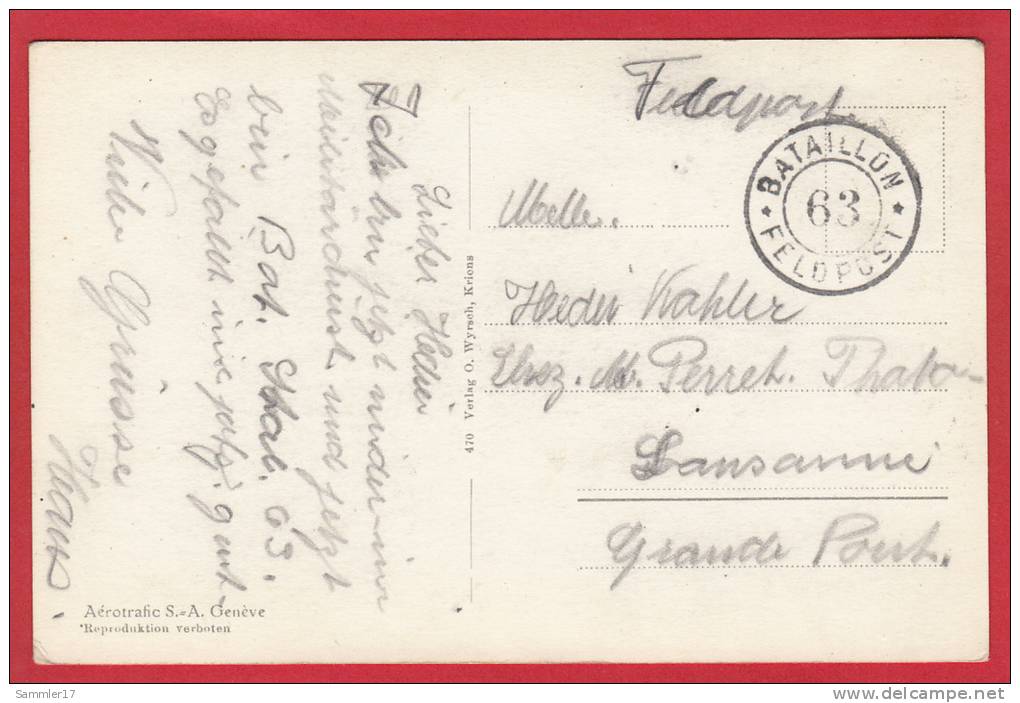 Feldpost.
BATAILLON
63
FELDPOST
Melle.
Hedi Kohler
chez. M. Perret.
Lausanne
Grande Pont.
Lieber Hedi
Ich bin jetzt wieder im
Militärdienst und jetzt
bin Bat. Stab. 63.
Es gefällt mir jetzt gut.
Viele Grüsse
Hans.
470 Verlag O. Wyrsch, Kriens
Aérotrafic S.=A. Genève
Reproduktion verboten
Sammler17
www.delcampe.net